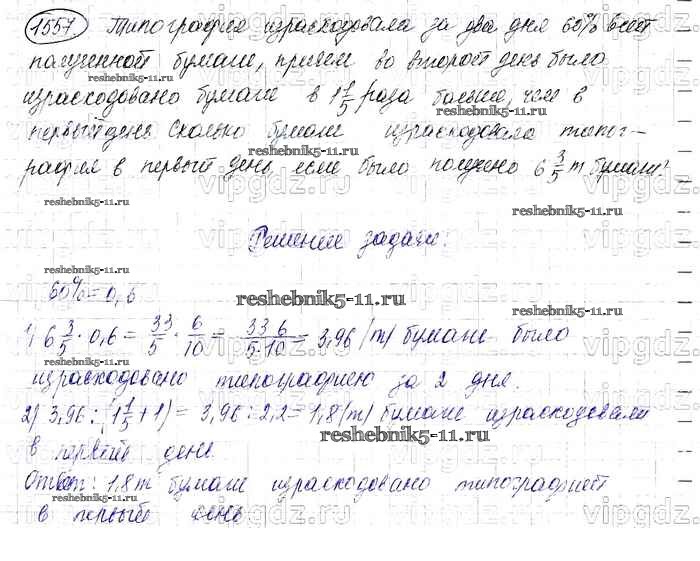 1557 Типография израсходовала за два дня 60% всей
полученной бумаги, причем во второй день было
израсходовано бумаги в 1 1/5 раза больше, чем в
первый день. Сколько бумаги израсходовала типог-
рафия в первый день, если было получено 6 3/5 т бумаги?
Решение задачи:
60% = 0,6
1) 6 3/5 · 0,6 = 33/5 · 6/10 = 33 6/5·10 = 3,96 (т) бумаги было
израсходовано типографиею за 2 дня.
2) 3,96 : (1 1/5 + 1) = 3,96 : 2,2 = 1,8 (т) бумаги израсходовали
в первый день.
Ответ: 1,8 т бумаги израсходовано типографией
в первый день
reshebnik5-11.ru
vipgdz.ru